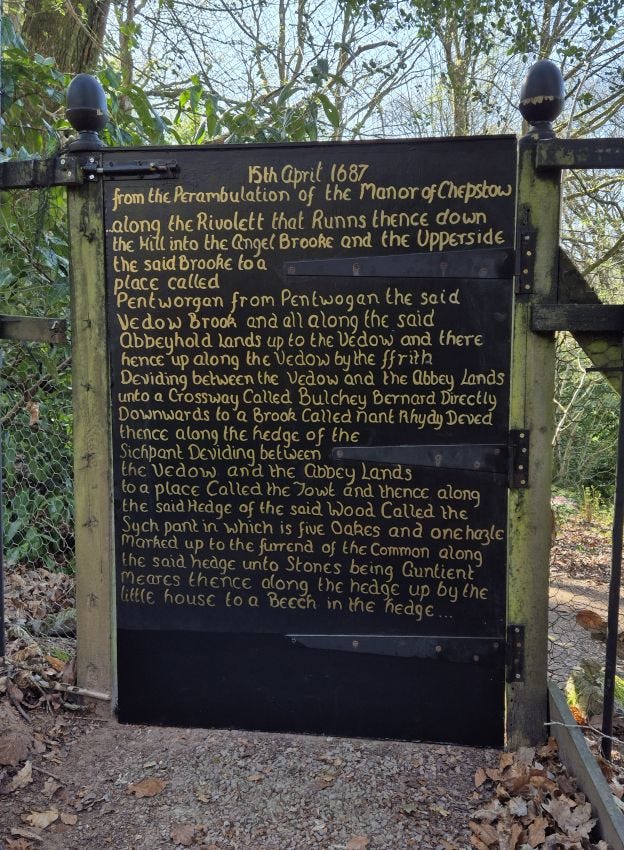 15th April 1687
from the Perambulation of the Manor of Chepstow
...along the Rivolett that Runns thence down
the hill into the Angel Brooke and the Upperside
the said Brooke to a
place called
Pentworgan from Pentwogan the said
Vedow Brook and all along the said
Abbeyhold lands up to the Vedow and there
hence up along the Vedow by the ffrith
Deviding between the Vedow and the Abbey Lands
unto a Crossway Called Bulchey Bernard Directly
Downwards to a Brook Called Nant Rhydy Deved
thence along the hedge of the
Sichpant Deviding between
the Vedow and the Abbey Lands
to a place Called the Towt and thence along
the said Hedge of the said Wood Called the
Sych pant in which is five Oakes and one hazle
Marked up to the furrend of the Common along
the said hedge unto Stones being Auntient
Meares thence along the hedge up by the
little house to a Beech in the hedge...